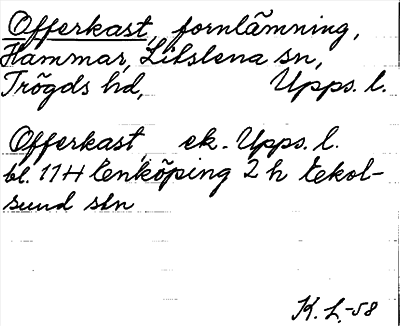 Offerkast, fornlämning,
Hammar, Litslena sn,
Trögds hd, Upps. l.
Offerkast, ek. Upps. l.
bl. 11H Enköping 2 h Ekol-
sund stn
K. L. -58